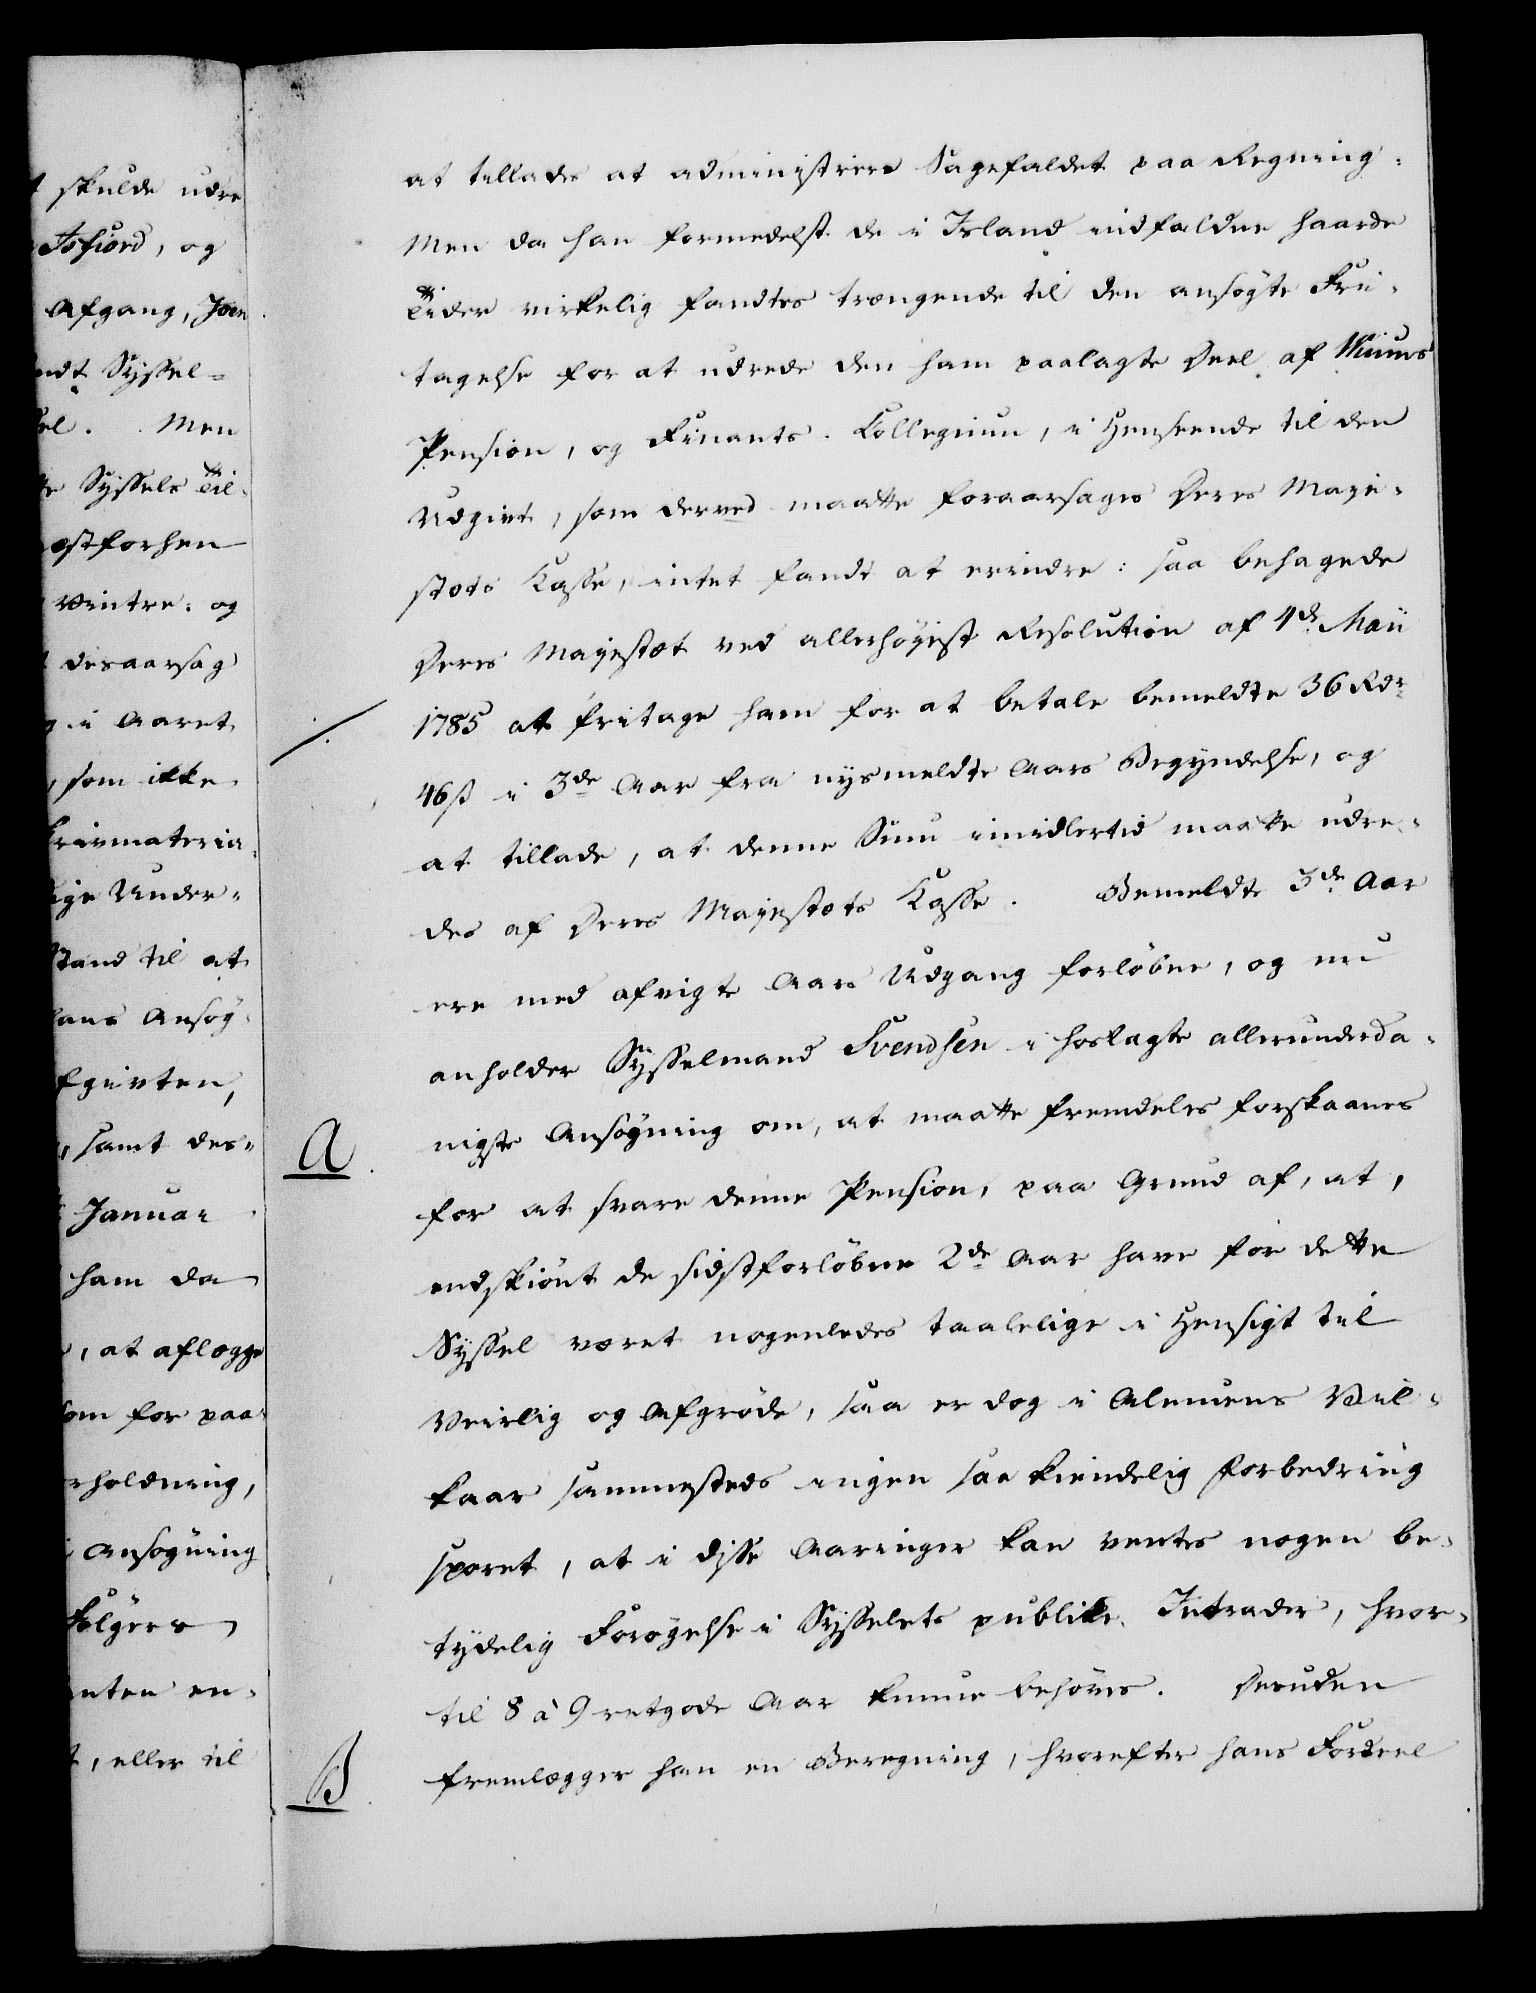 skulde udre
Isfiord, og
Afgang, Joen
ndt Syssel=
el. Men
Syssels Til-
ostforhen
Vintre: og
desaarsag
i Aaret
, som ikke
rivmateria-
ige Under-
stand til at
ans Ansög-
fgivten,
, samt des-
Januar
ham da
, at aflægge
som for paa-
rholdning,
Ansøgning
følgers
nten en-
, eller til
at tillade at administrere Sagefaldet paa Regning:
Men da han formedelst de i Island indfaldne haarde
Tider virkelig fandtes trængende til den ansøgte Fri-
tagelse for at udrede den ham paalagte Deel af Wiums
Pension, og Finants-Collegium, i Henseende til den
Udgivt, som derved maatte foraarsages Deres Maje-
stæts Casse, intet fandt at erindre: saa behagede
Deres Majestæt ved allerhöyest Resolution af 4de Maii
1785 at fritage ham for at betale bemeldte 36 Rdr
46 ß i 3de Aar fra nysmeldte Aars Begyndelse, og
at tillade, at denne Sum imidlertid maatte udre-
des af Deres Majestæts Casse. Bemeldte 3de Aar
ere med afvigte Aars Udgang forløbne, og nu
anholder Sysselmand Svendsen i hoslagte allerunderda-
A. nigste Ansögning om, at maatte fremdeles forskaanes
for at svare denne Pension, paa Grund af, at,
endskiönt de sidstforløbne 2de Aar have for dette
Syssel været nogenledes taalelige i Hensigt til
Veirlig og Afgröde, saa er dog i Almuens Vil-
kaar sammesteds ingen saa kiendelig Forbedring
sporet, at i disse Aaringer kan ventes nogen be-
tydelig Forøgelse i Sysselets publike Intrader, hvor-
til 8 à 9 retgode Aar kunne behöves. Desuden
B. fremlægger han en Beregning, hvorefter hans Fordeel